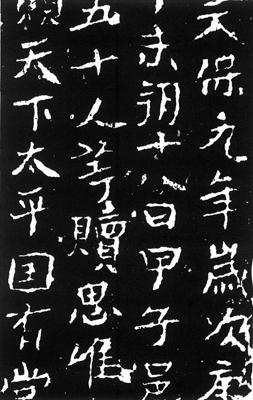 天保九年歲次
未朔十八日甲子邑
五十人等贖思惟
願天下太平囯有